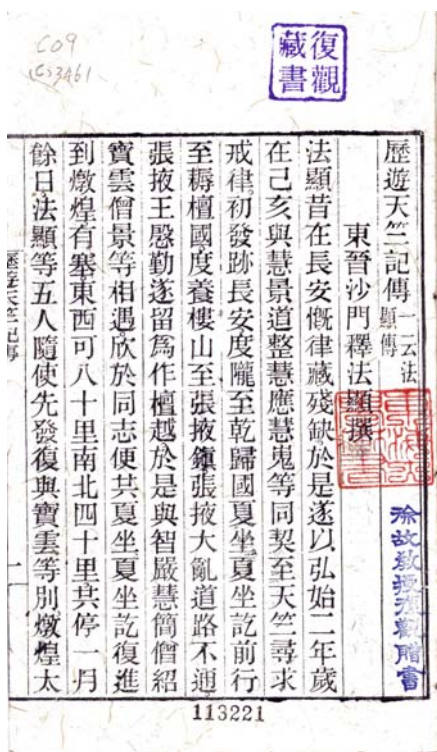 C09
復觀
藏書
歷遊天竺記傳一云法
顯傳
東晉沙門釋法顯撰
法顯昔在長安慨律藏殘缺於是遂以弘始二年歲
在己亥與慧景道整慧應慧嵬等同契至天竺尋求
戒律。初發跡長安度隴至乾歸國夏坐。夏坐訖前行
至耨檀國度養樓山至張掖鎮張掖大亂道路不通
張掖王慇勤遂留爲作檀越於是與智嚴慧簡僧紹
寶雲僧景等相遇欣於同志便共夏坐。夏坐訖復進
到燉煌有塞東西可八十里南北四十里共停一月
餘日法顯等五人隨使先發復與寶雲等別燉煌太
一
徐故教授復觀贈書
113221